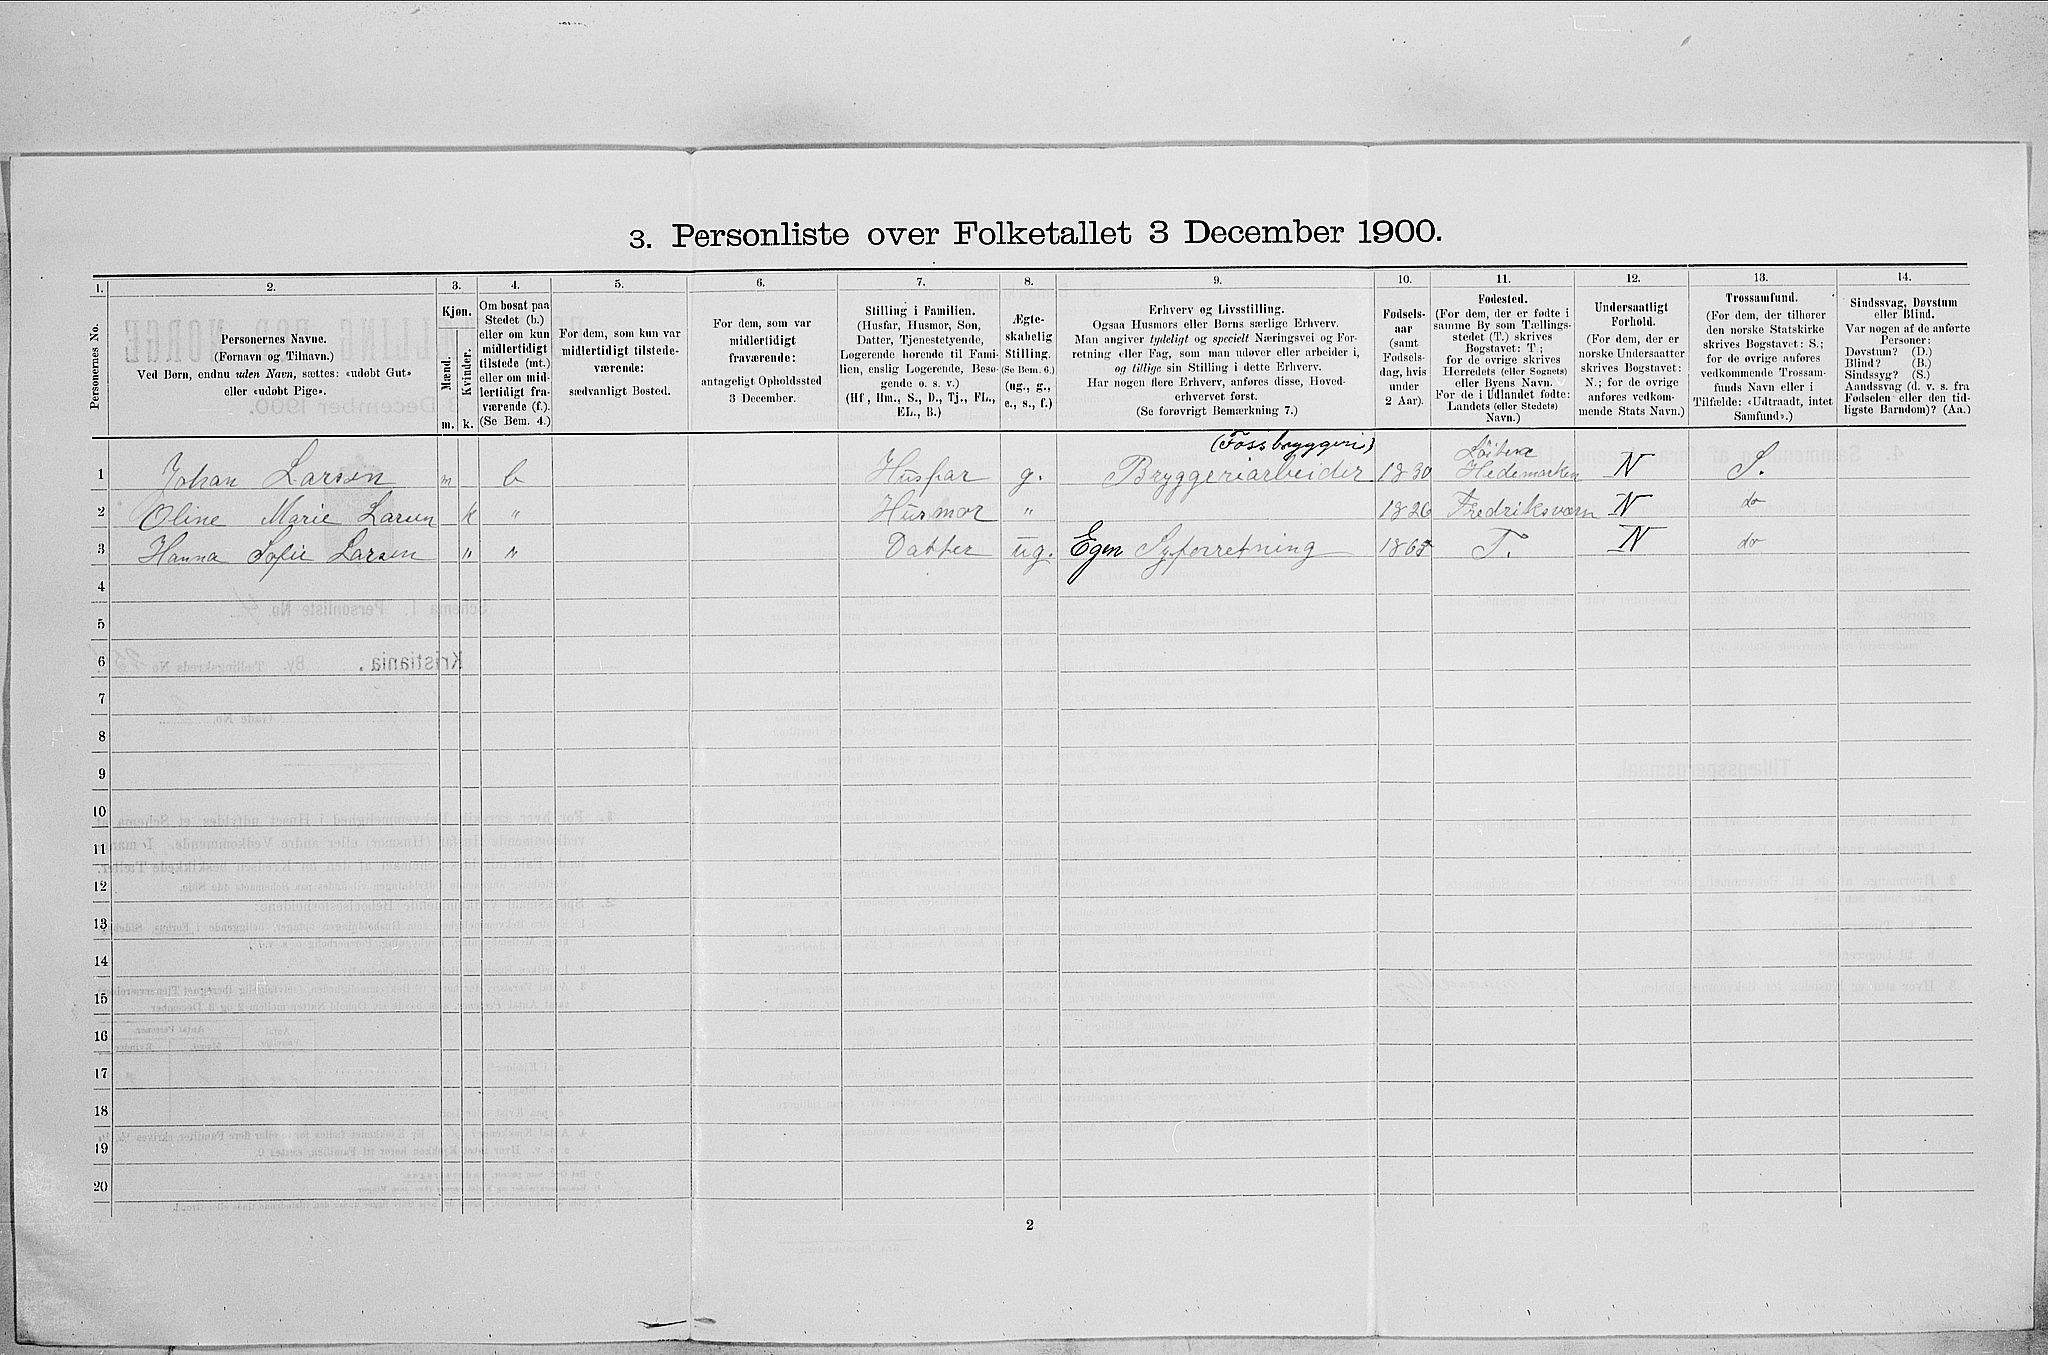 3. Personliste over Folketallet 3 December 1900.
1. 2. 3. 4. 5. 6. 7. 8. 9. 10. 11. 12. 13. 14.
Personernes No.
Personernes Navne.
(Fornavn og Tilnavn.)
Ved Børn, endnu uden Navn, sættes: «udøbt Gut»
eller «udøbt Pige».
Kjøn.
Mænd.
Kvinder.
m. k.
Om bosat paa
Stedet (b.)
eller om kun
midlertidigt
tilstede (mt.)
eller om mid-
lertidigt fra-
værende (f.).
(Se Bem. 4.)
For dem, som kun var
midlertidigt tilstede-
værende:
sædvanligt Bosted.
For dem, som var
midlertidigt
fraværende:
antageligt Opholdssted
3 December.
Stilling i Familien.
(Husfar, Husmor, Søn,
Datter, Tjenestetyende,
Logerende hørende til Fami-
lien, enslig Logerende, Besø-
gende o. s. v.)
(Hf., Hm., S., D., Tj., FL.,
EL., B.)
Ægte-
skabelig
Stilling.
(Se Bem. 6.)
(ug., g.,
e., s., f.)
Erhverv og Livsstilling.
Ogsaa Husmors eller Børns særlige Erhverv.
Man angiver tydeligt og specielt Næringsvei og For-
retning eller Fag, som man udøver eller arbeider i,
og tillige sin Stilling i dette Erhverv.
Har nogen flere Erhverv, anføres disse, Hoved-
erhvervet først.
(Se forøvrigt Bemærkning 7.)
Fødsels-
aar
(samt
Fødsels-
dag, hvis
under
2 Aar).
Fødested.
(For dem, der er fødte i
samme By som Tællings-
stedet (T.) skrives
Bogstavet: T;
for de øvrige skrives
Herredets (eller Sognets)
eller Byens Navn.
For de i Udlandet fødte:
Landets (eller Stedets)
Navn.)
Undersaatligt
Forhold.
(For dem, der er
norske Undersaatter
skrives Bogstavet:
N.; for de øvrige
anføres vedkom-
mende Stats Navn.)
Trossamfund.
(For dem, der tilhører
den norske Statskirke
skrives Bogstavet: S.;
for de øvrige anføres
vedkommende Trossam-
funds Navn eller i
Tilfælde: «Udtraadt, intet
Samfund».)
Sindssvag, Døvstum
eller Blind.
Var nogen af de anførte
Personer:
Døvstum? (D.)
Blind? (B.)
Sindssyg? (S.)
Aandssvag (d. v. s. fra
Fødselen eller den tid-
ligste Barndom)? (Aa.)
(Fossbryggeri)
1 Johan Larsen m b Husfar g. Bryggeriarbeider 1830 Hedemarken N S.
2 Oline Marie Larsen k " Husmor " 1826 Fredriksværn N do
3 Hanna Sofie Larsen " " Datter ug. Egen Syforretning T. N do
4
5
6
7
8
9
10
11
12
13
14
15
16
17
18
19
20
2